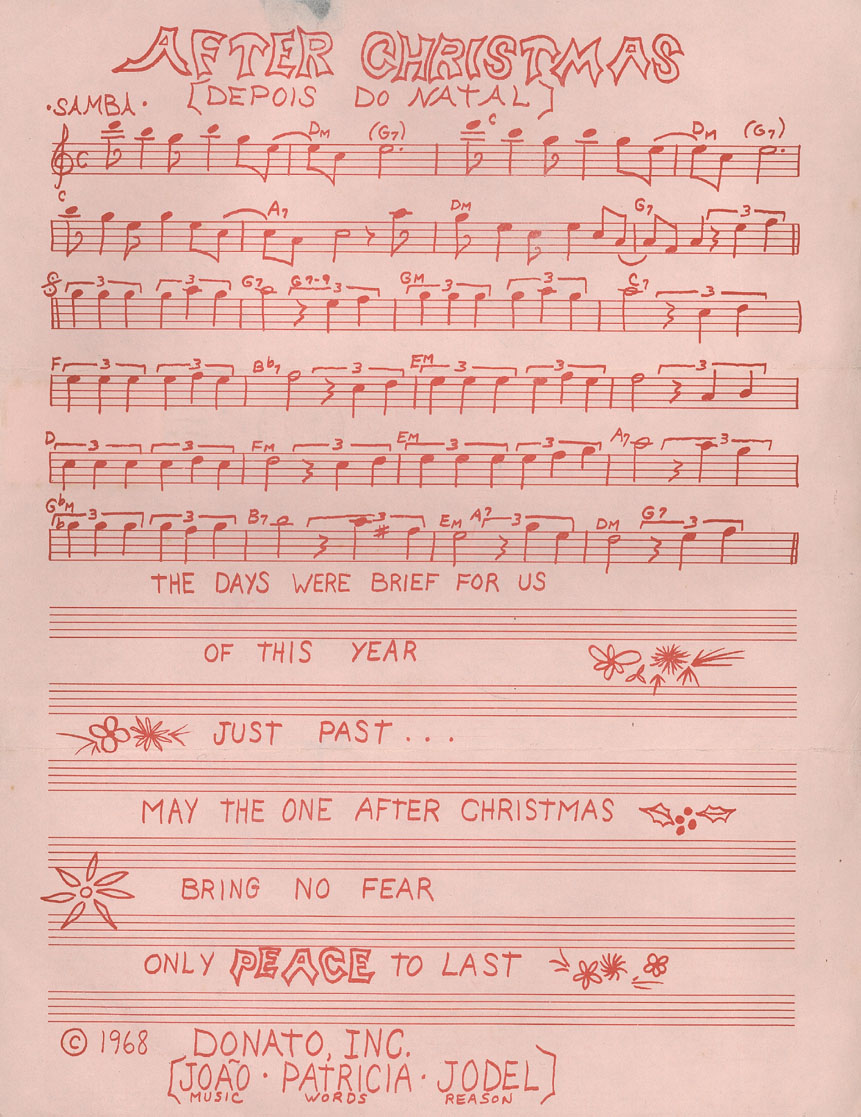 AFTER CHRISTMAS
[DEPOIS DO NATAL]
·SAMBA·
C DM (G7) C DM (G7)
C A7 DM G7 3
3 3 G7 G7-9 3 GM 3 3 C7 3
F 3 3 Bb7 3 EM 3 3 3
D 3 3 FM 3 EM 3 3 A7 3
GbM 3 3 B7 3 EM A7 3 DM G7 3
THE DAYS WERE BRIEF FOR US
OF THIS YEAR
JUST PAST...
MAY THE ONE AFTER CHRISTMAS
BRING NO FEAR
ONLY PEACE TO LAST
© 1968 DONATO, INC.
[JOÃO · PATRICIA · JODEL]
MUSIC WORDS REASON